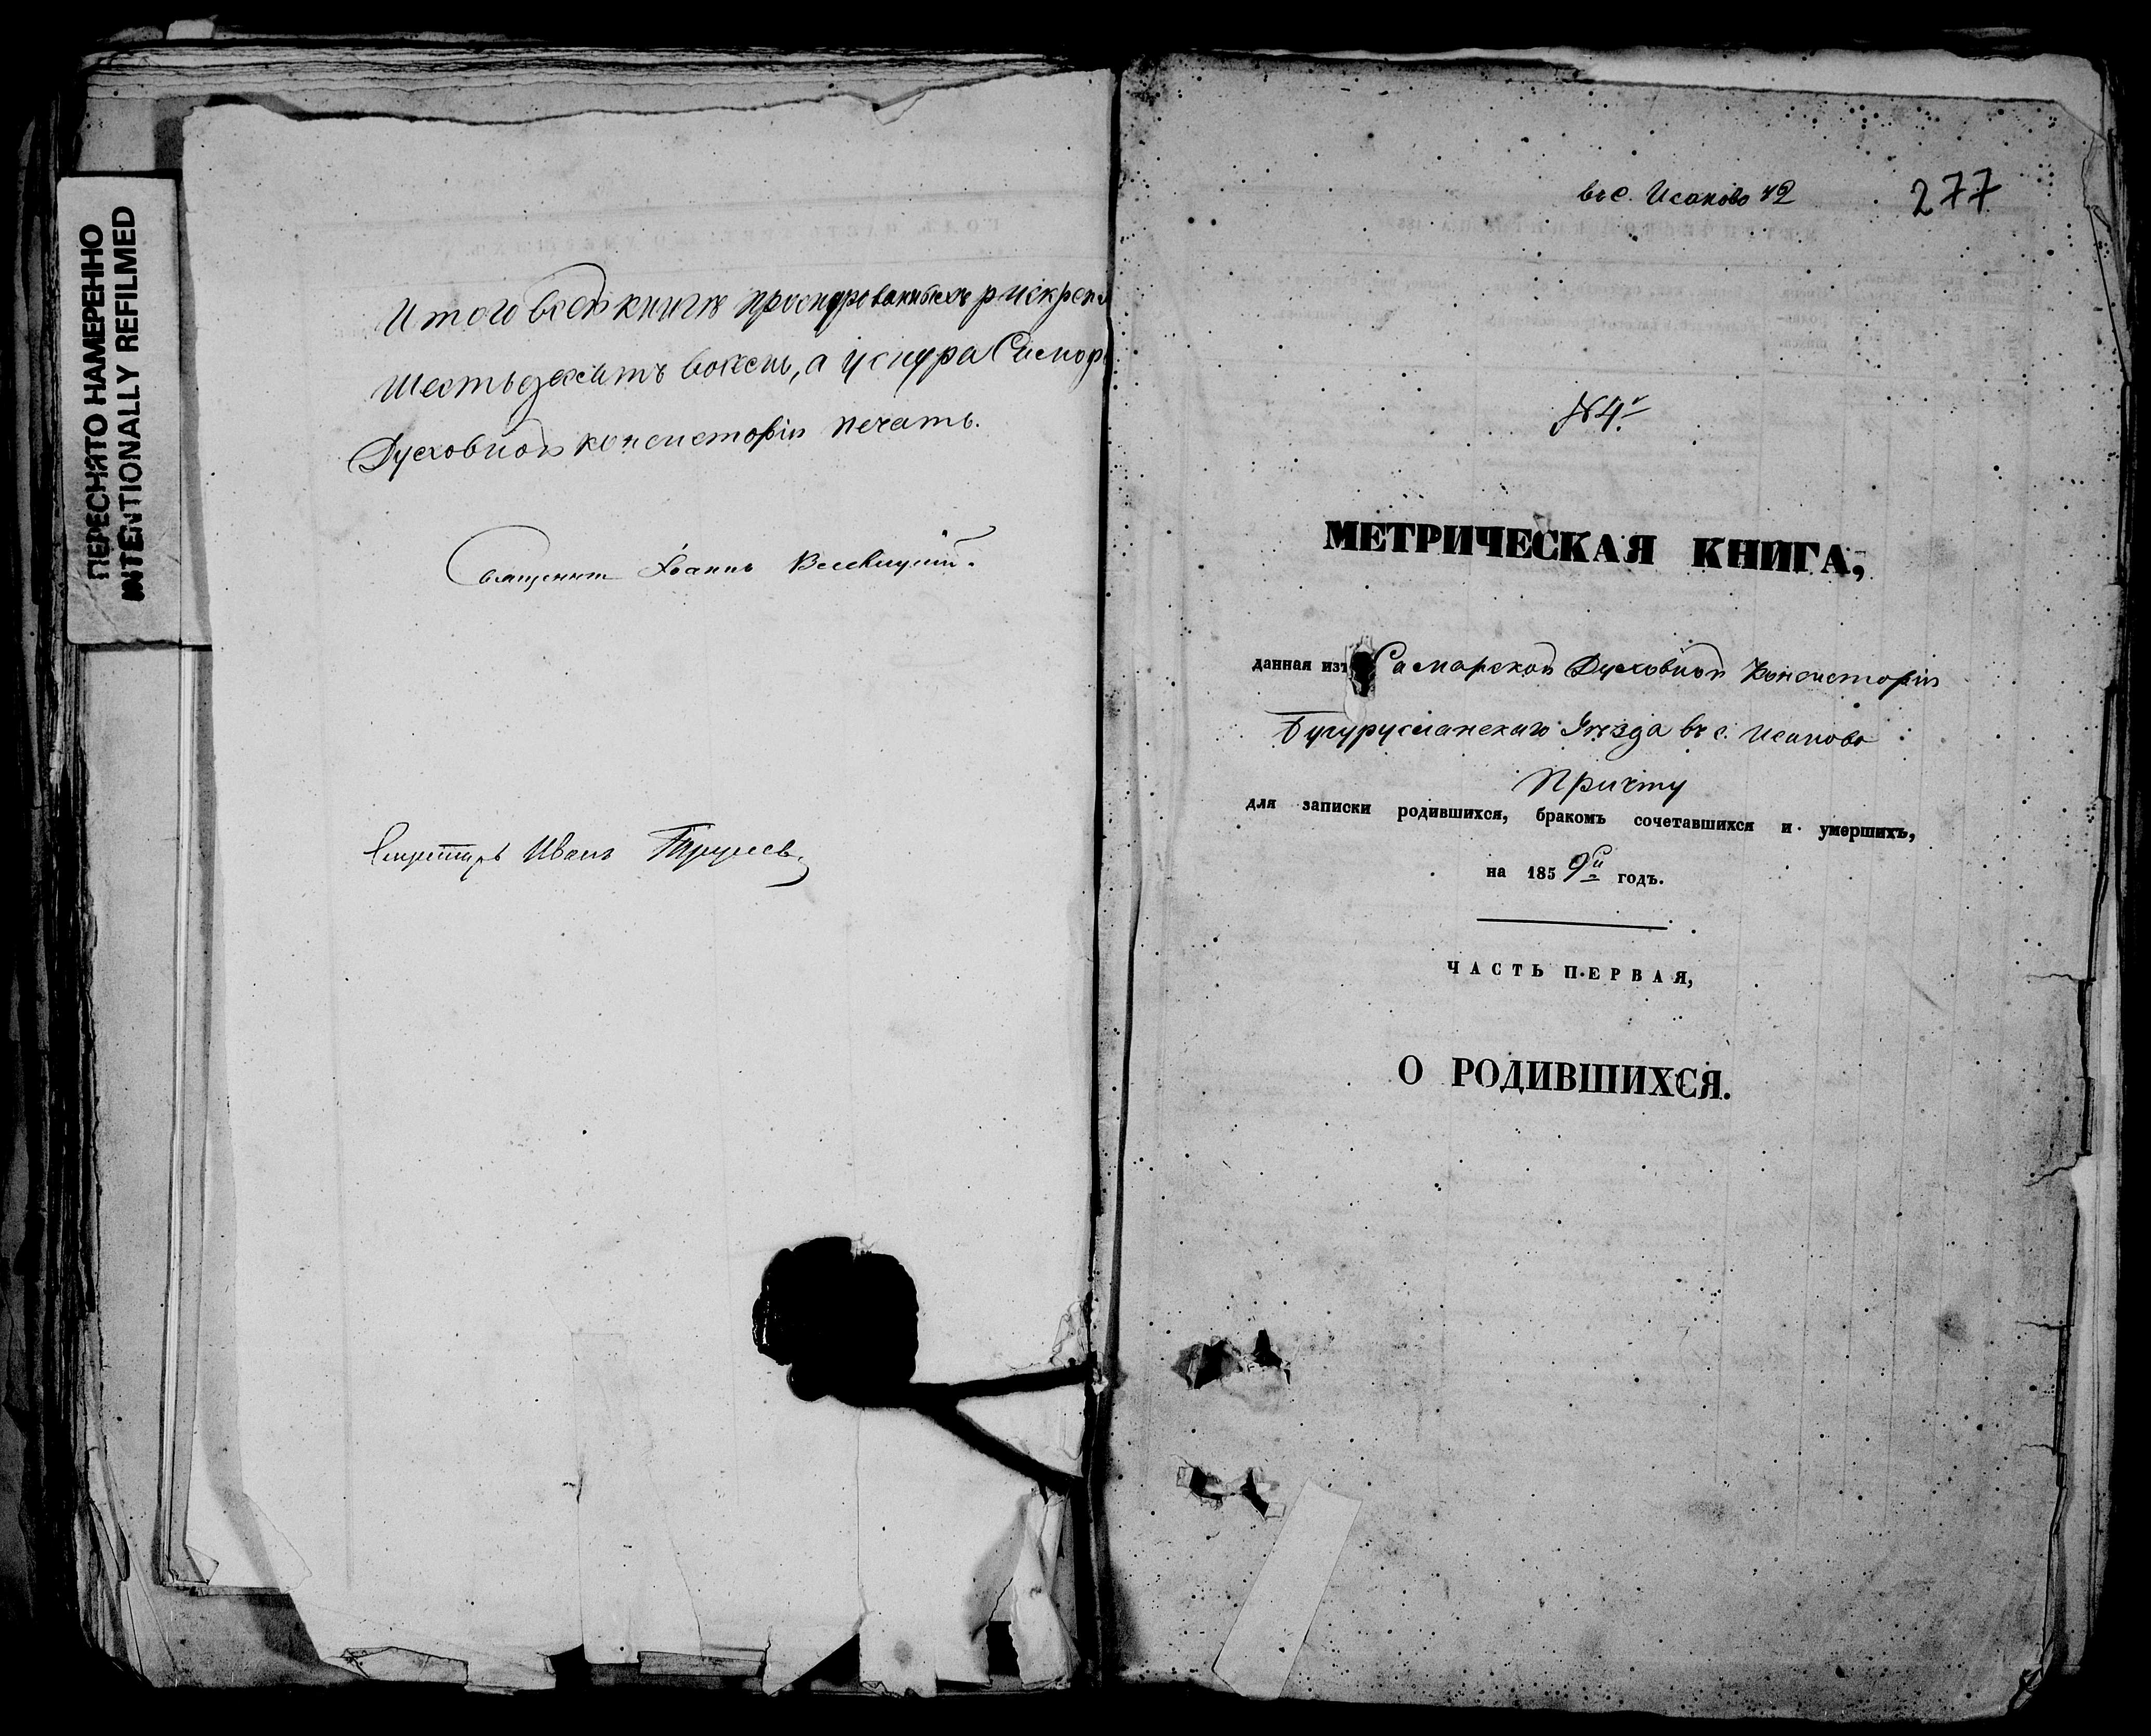 ПЕРЕСНЯТО НАМЕРЕННО
INTENTIONALLY REFILMED
Итого всей книги прошнурованныхъ
Шестьдесятъ восемь, а у снура Самор
Духовной консисторіи печать.
Священникъ Іоаннъ
Секретарь Иванъ
въ с. Исаково 72
277
№ 4й
МЕТРИЧЕСКАЯ КНИГА,
данная изъ Самарской Духовной Консисторіи
Бугурусланскаго Уѣзда въ с. Исаково
Причту
для записки родившихся, бракомъ сочетавшихся и умершихъ,
на 1859й годъ.
ЧАСТЬ ПЕРВАЯ,
О РОДИВШИХСЯ.